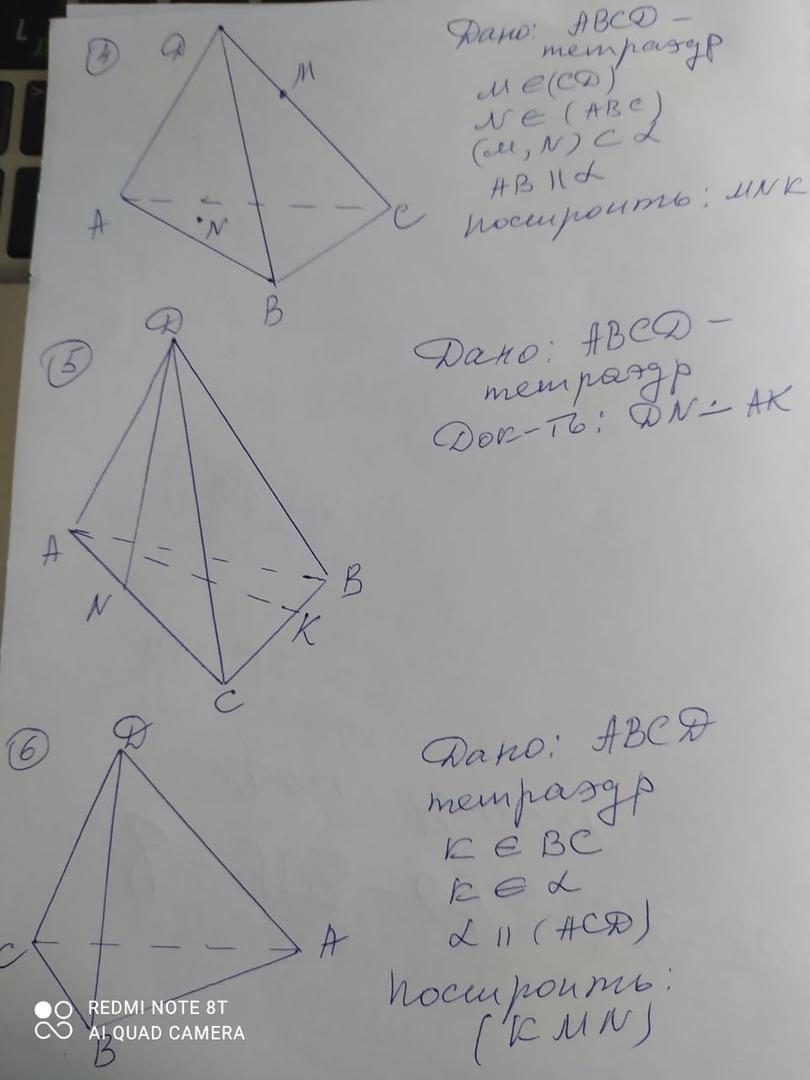 4
D
M
A
N
C
B
Дано: ABCD –
тетраэдр
M ∈ (CD)
N ∈ (ABC)
(M, N) ⊂ α
AB || α
Построить: MNK
5
D
A
B
N
K
C
Дано: ABCD –
тетраэдр
Док-ть: DN ∸ AK
6
D
C
A
B
Дано: ABCD
тетраэдр
K ∈ BC
K ∈ α
α || (ACD)
Построить:
(KMN)
REDMI NOTE 8T
AI QUAD CAMERA